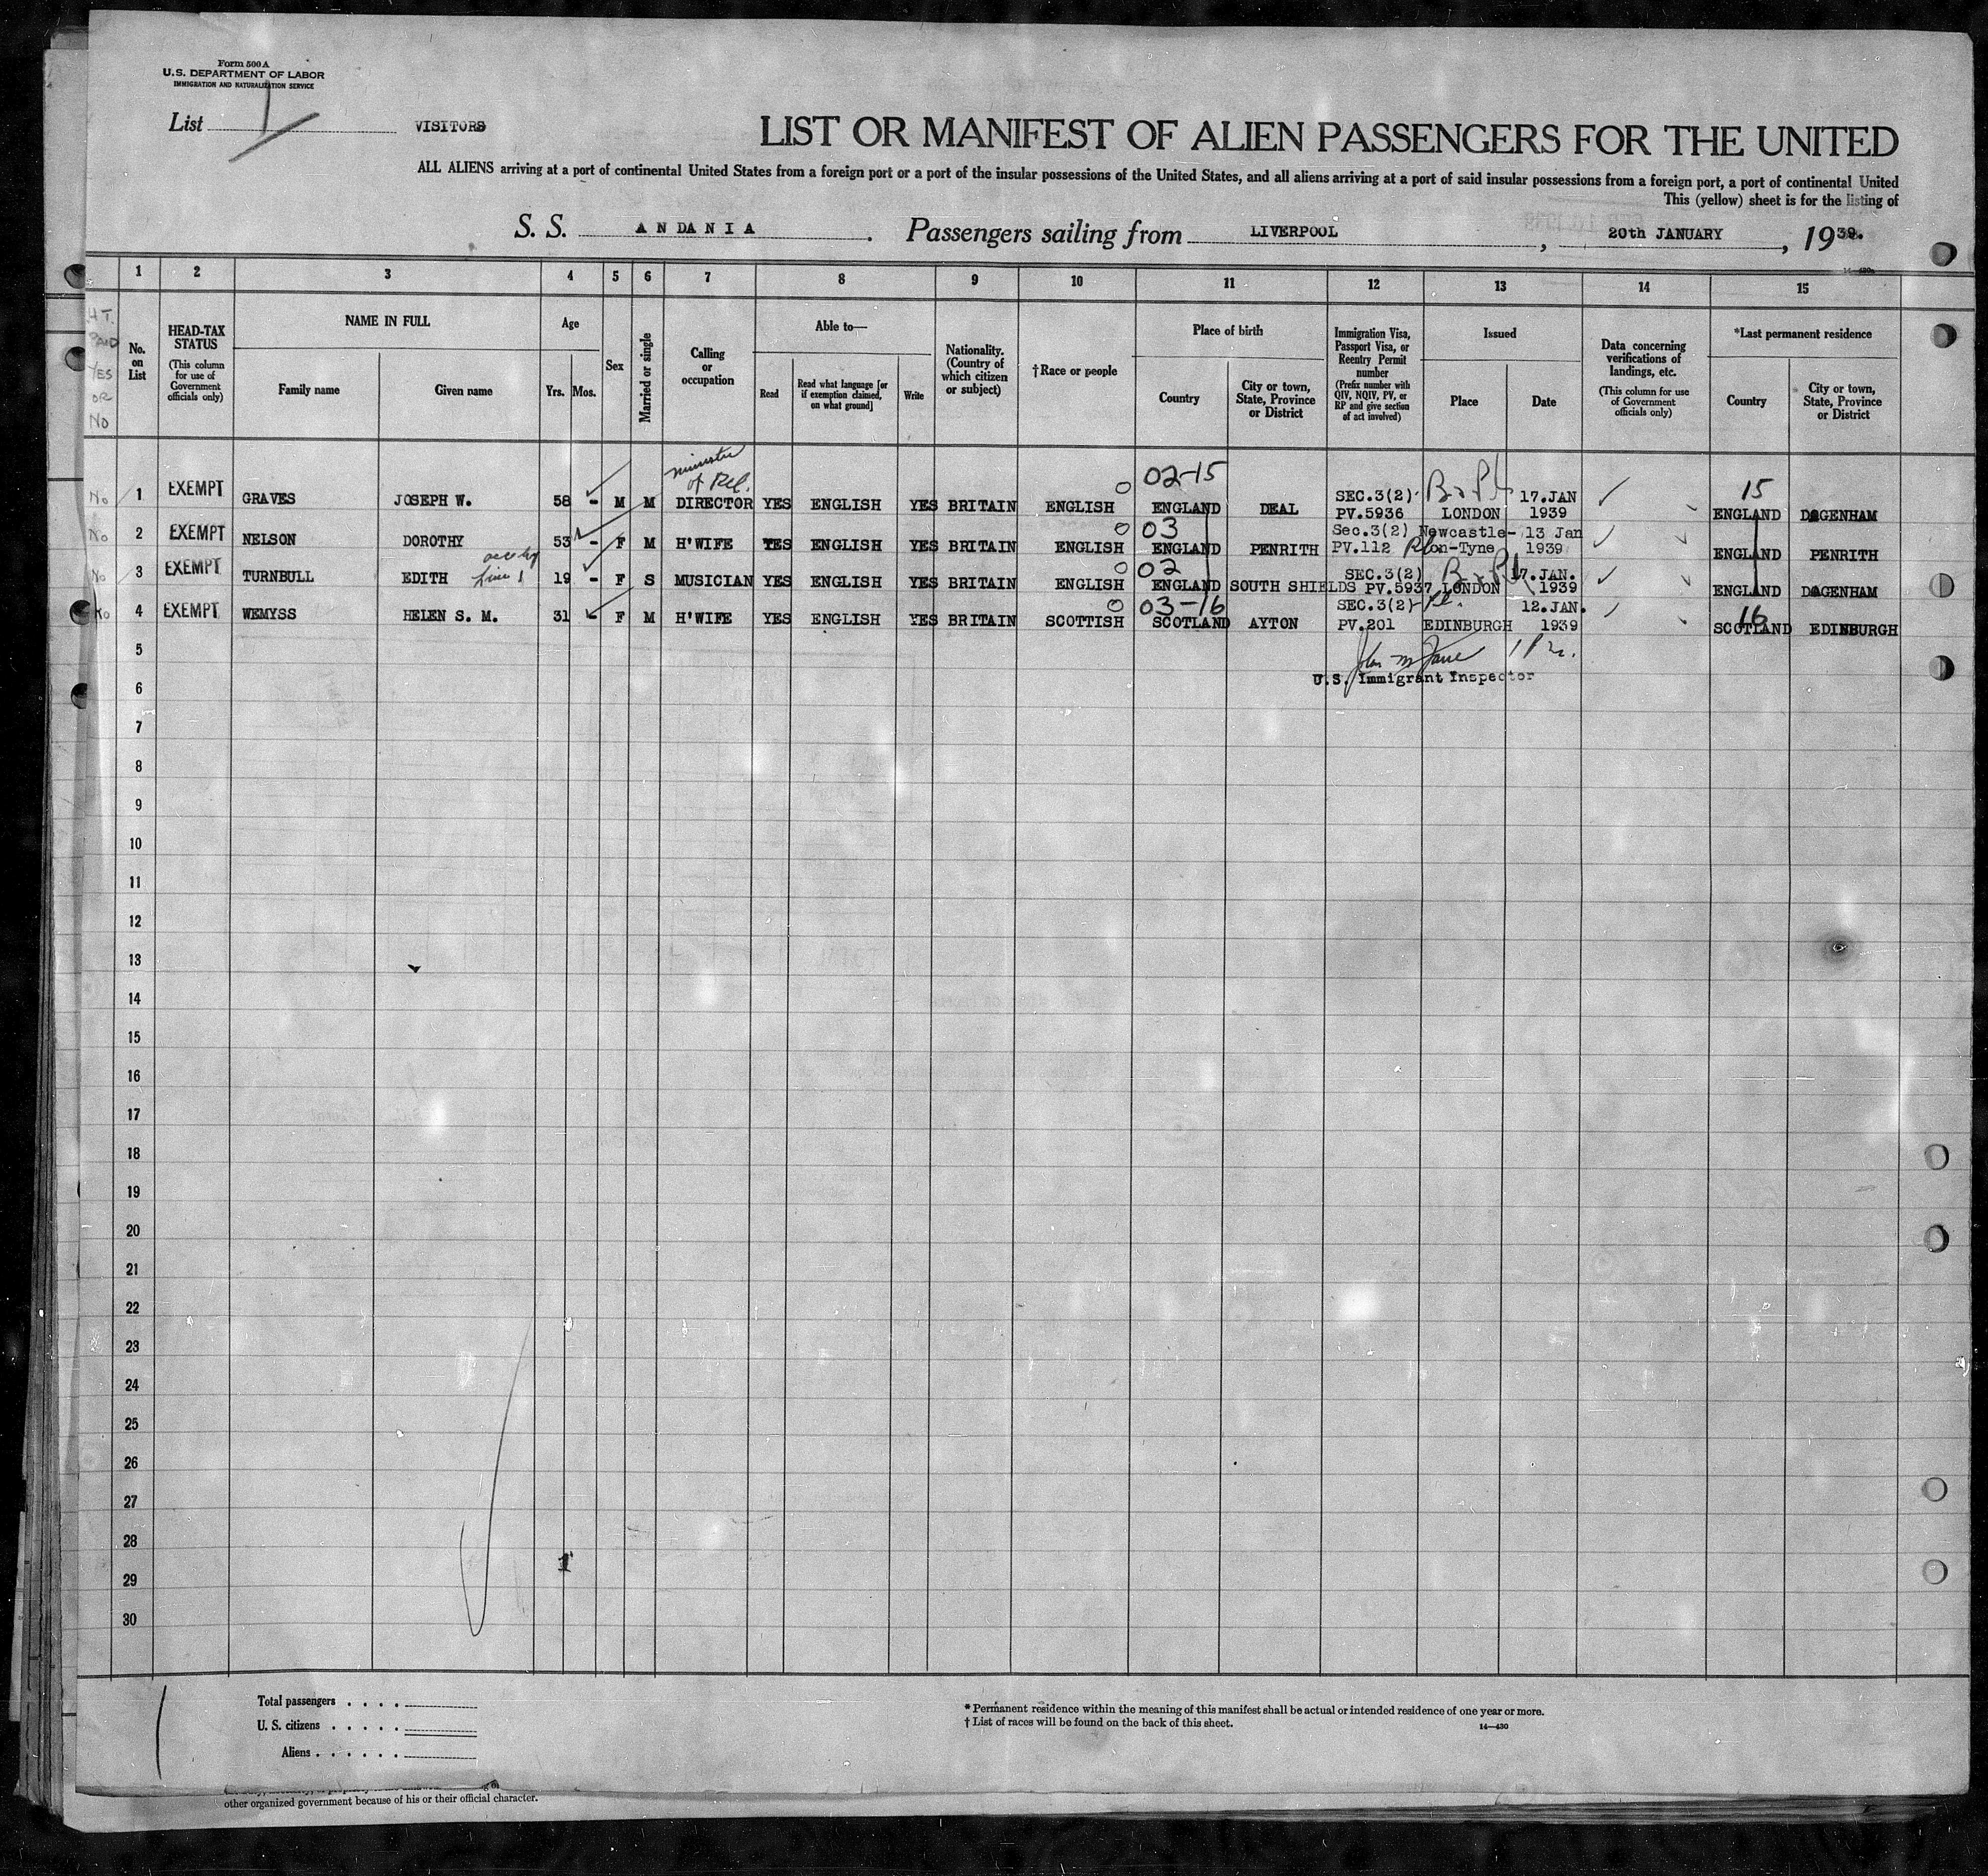 Form 500 A
U.S. DEPARTMENT OF LABOR
IMMIGRATION AND NATURALIZATION SERVICE
List 1 VISITORS
LIST OR MANIFEST OF ALIEN PASSENGERS FOR THE UNITED
ALL ALIENS arriving at a port of continental United States from a foreign port or a port of the insular possessions of the United States, and all aliens arriving at a port of said insular possessions from a foreign port, a port of continental United
This (yellow) sheet is for the listing of
S. S. ANDANIA. Passengers sailing from LIVERPOOL, 20th JANUARY, 1939.
1 2 3 4 5 6 7 8 9 10 11 12 13 14 15
H.T. PAID YES OR NO
No. on List
HEAD-TAX STATUS (This column for use of Government officials only)
NAME IN FULL
Family name Given name
Age
Yrs. Mos.
Sex
Married or single
Calling or occupation
Able to—
Read Read what language [or if exemption claimed, on what ground] Write
Nationality. (Country of which citizen or subject)
†Race or people
Place of birth
Country City or town, State, Province or District
Immigration Visa, Passport Visa, or Reentry Permit number (Prefix number with QIV, NQIV, PV, or RP and give section of act involved)
Issued
Place Date
Data concerning verifications of landings, etc. (This column for use of Government officials only)
*Last permanent residence
Country City or town, State, Province or District
minister of Rel. 02-15 15
No 1 EXEMPT GRAVES JOSEPH W. 58 - M M DIRECTOR YES ENGLISH YES BRITAIN ENGLISH ENGLAND DEAL SEC.3(2) PV.5936 LONDON 17.JAN 1939 ENGLAND DAGENHAM
03
No 2 EXEMPT NELSON DOROTHY 53 - F M H'WIFE YES ENGLISH YES BRITAIN ENGLISH ENGLAND PENRITH Sec.3(2) PV.112 Newcastle-on-Tyne 13 Jan 1939 ENGLAND PENRITH
02
No 3 EXEMPT TURNBULL EDITH Line 1 19 - F S MUSICIAN YES ENGLISH YES BRITAIN ENGLISH ENGLAND SOUTH SHIELDS SEC.3(2) PV.5937 LONDON 17.JAN. 1939 ENGLAND DAGENHAM
03-16 16
No 4 EXEMPT WEMYSS HELEN S. M. 31 - F M H'WIFE YES ENGLISH YES BRITAIN SCOTTISH SCOTLAND AYTON SEC.3(2) PV.201 EDINBURGH 12.JAN. 1939 SCOTLAND EDINBURGH
5
6 U.S. Immigrant Inspector
7
8
9
10
11
12
13
14
15
16
17
18
19
20
21
22
23
24
25
26
27
28
1
29
30
Total passengers . . . .
U. S. citizens . . . . .
Aliens . . . . . .
* Permanent residence within the meaning of this manifest shall be actual or intended residence of one year or more.
† List of races will be found on the back of this sheet.
14—430
other organized government because of his or their official character.